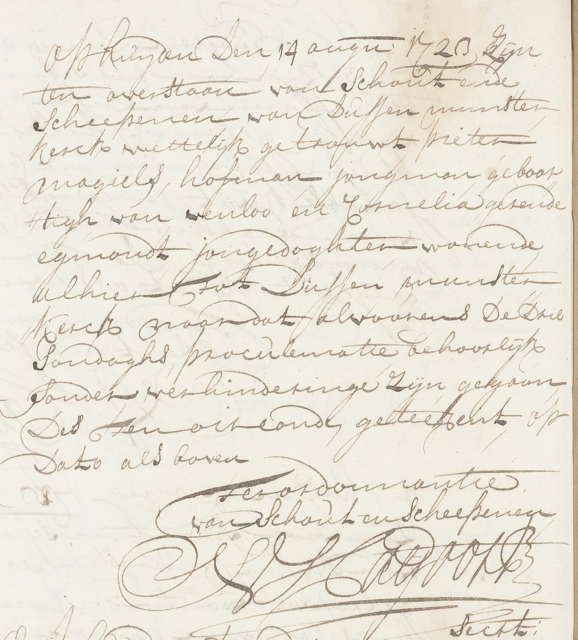 Op huyden den 14 augu: 1723 Zyn
ten overstaan van Schout ende
Scheepenen van Dussen munster
kerck wettelijk getrouwt pieter
magiels hofman jongman geboor
tigh van venloo en Cornelia gerende
egmondt jongedoghter wonende
alhier tot Dussen munster
kerck naar dat alvoorens De Drie
Sondaghs proculematie behoorlijk
sonder verhinderinge Zijn gegaan
Des ten oirconde geteekent, op
Dato als boven
Ter ordonnantie
van Schout en Scheepenen
Sect: